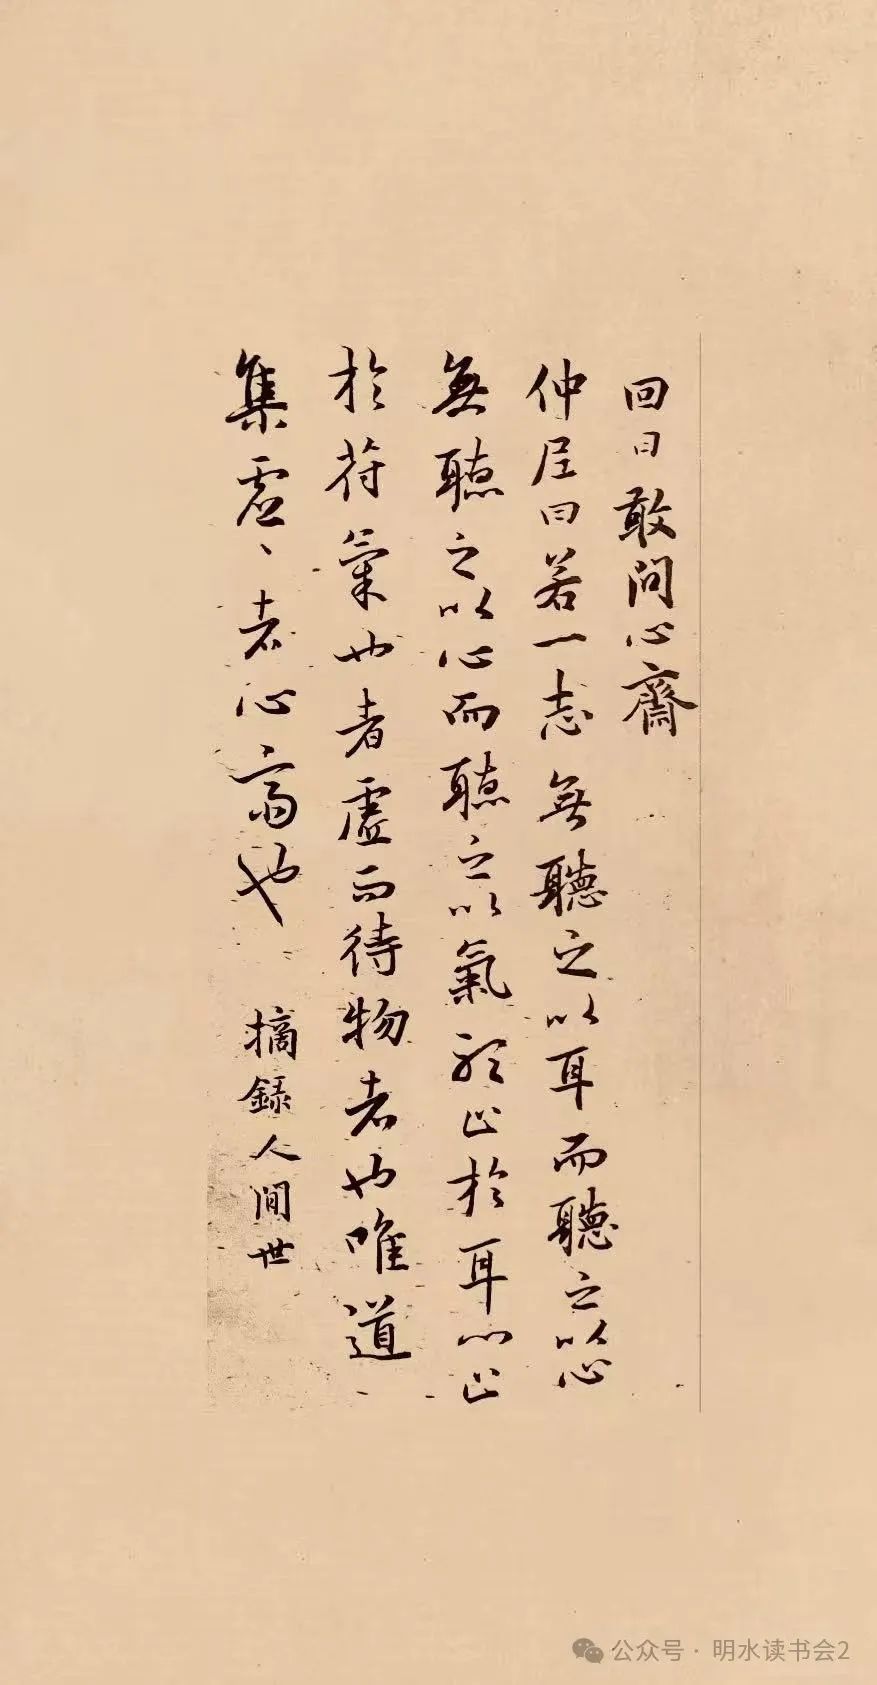 回曰敢问心齋
仲尼曰若一志無聽之以耳而聽之以心
無聽之以心而聽之以氣聽止於耳心止
於符氣也者虛而待物者也唯道
集虛、者心齋也
摘録人間世
公众号·明水读书会2